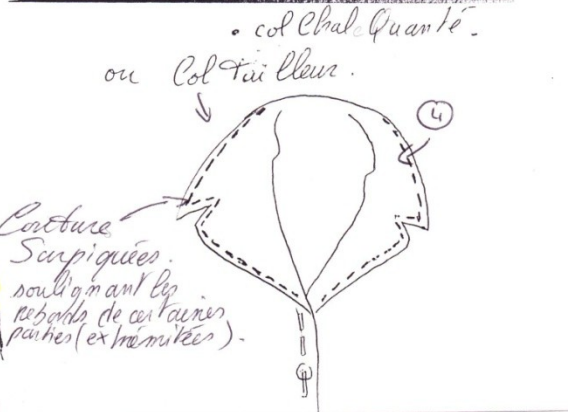 • col Châle Quanté.
ou Col Tailleur.
4
Couture
Surpiquées.
soulignant les
rebords de certaines
parties (extrémitées).